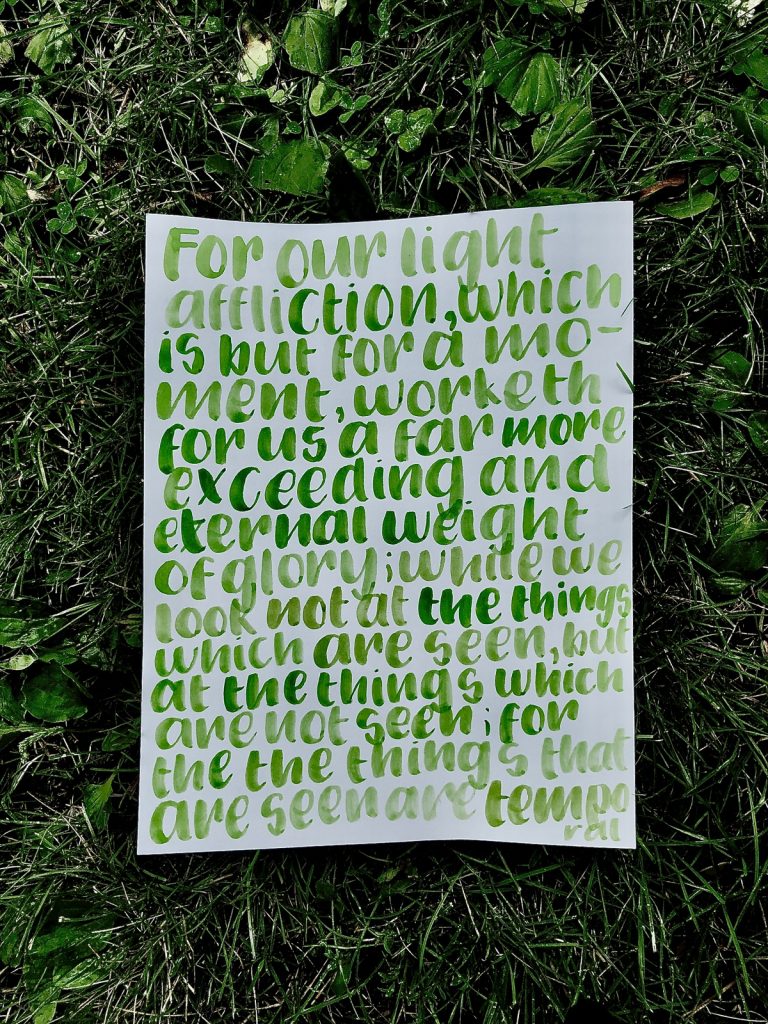 For our light
affliction, which
is but for a mo-
ment, worketh
for us a far more
exceeding and
eternal weight
of glory; while we
look not at the things
which are seen, but
at the things which
are not seen; for
the the things that
are seen are tempo
ral